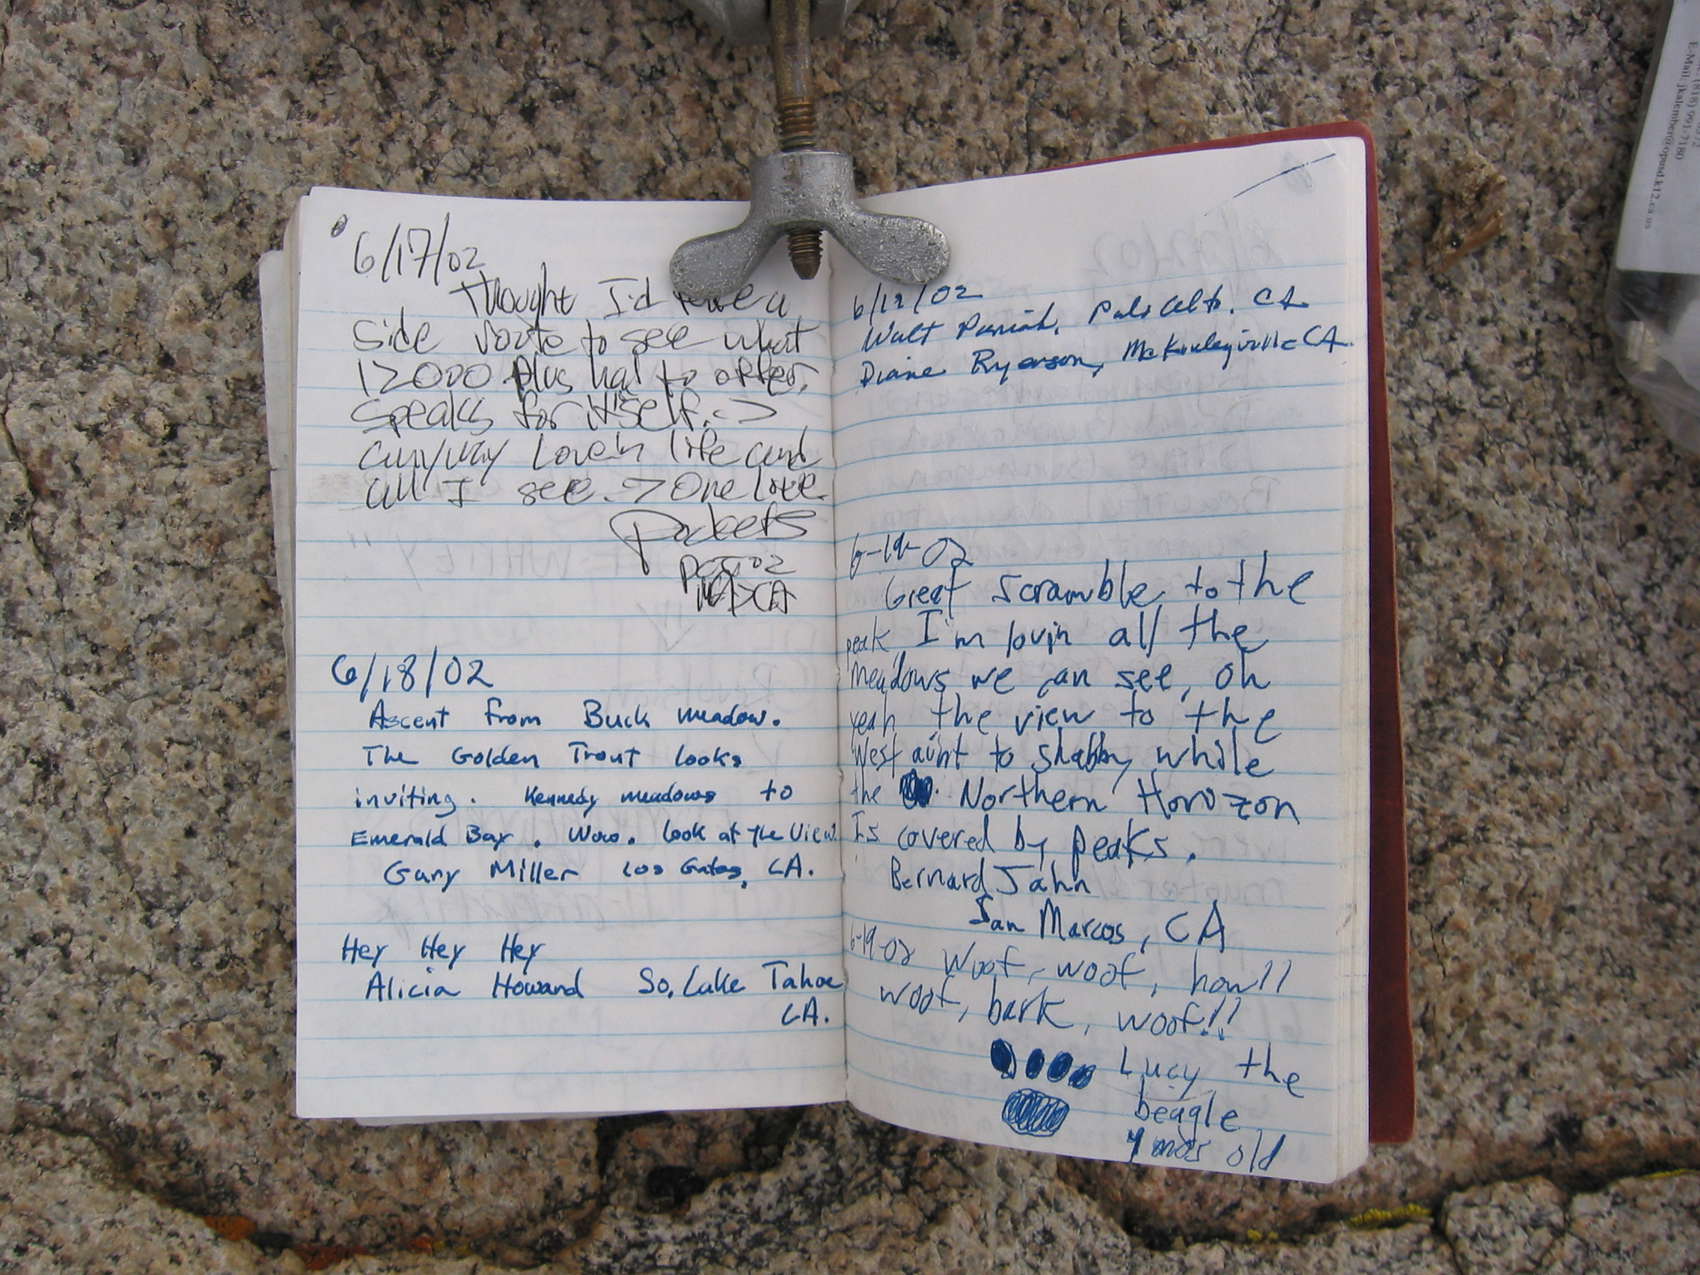 6/17/02
thought I'd have a
side route to see what
12000 plus had to offer,
speaks for itself. ->
anyway Love'n life and
all I see. -> One love.
6/18/02
Ascent from Buck meadow.
The Golden Trout looks
inviting. Kennedy meadows to
Emerald Bay. Wow. Look at the View.
Gary Miller Los Gatos, CA.
Hey Hey Hey
Alicia Howard So. Lake Tahoe
CA.
Walt Palo Alto. CA
Diane Ryerson, McKinleyville CA.
6-19-02
Great scramble to the
peak I'm lovin all the
meadows we can see, oh
yeah the view to the
West aint to shabby while
the Northern Horozon
Is covered by peaks.
Bernard Jahn
San Marcos, CA
6-19-02 Woof, woof, howl!
woof, bark, woof!!
Lucy the
beagle
mos old